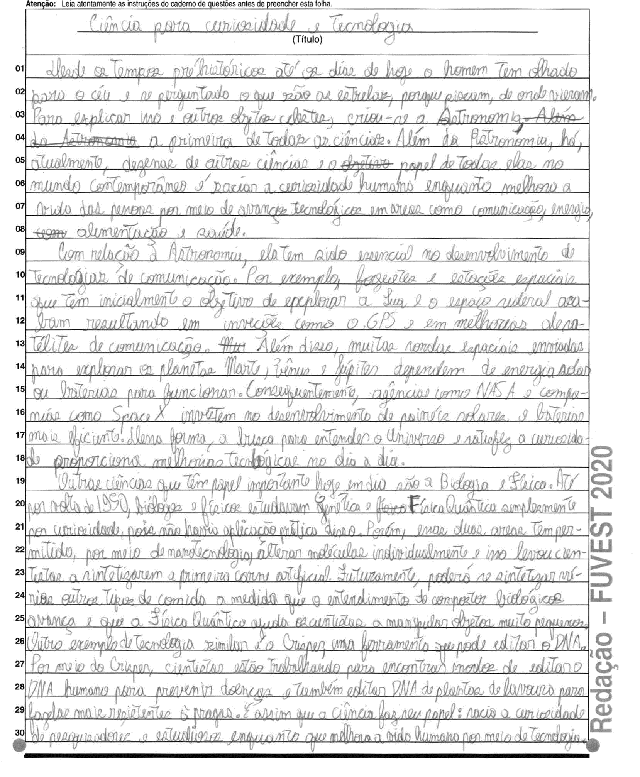 Atenção: Leia atentamente as instruções do caderno de questões antes de preencher esta folha.
Ciência para curiosidade e Tecnologia
(Título)
01 Desde os Tempos pré-históricos até os dias de hoje o homem tem olhado
02 para o céu e se perguntado o que são as estrelas, porque piscam, de onde vieram.
03 Para explicar isso e outros objetos celestes, criou-se a Astronomia, Além
04 da Astronomia a primeira de todas as ciências. Além da Astronomia, há,
05 atualmente, dezenas de outras ciências e o objetivo papel de todas elas no
06 mundo contemporâneo é saciar a curiosidade humana enquanto melhora a
07 vida das pessoas por meio de avanços tecnológicos em areas como comunicação, energia,
08 alimentação e saúde.
09 Com relação à Astronomia, ela tem sido essencial no desenvolvimento de
10 Tecnologias de comunicação. Por exemplo, foguetes e estações espaciais
11 que tem inicialmente o objetivo de explorar a Lua e o espaço sideral aca-
12 bam resultando em inveções como o GPS e em melhorias de sa-
13 télites de comunicação. Além disso, muitas sondas espaciais enviadas
14 para explorar os planetas Marte, Vênus e Júpiter dependem de energia solar
15 ou baterias para funcionar. Consequentemente, agências como NASA e compa-
16 nias como Space X investem no desenvolvimento de painéis solares e baterias
17 mais eficiente. Dessa forma, a busca para entender o Universo e satisfaz a curiosida-
18 de proporciona melhorias tecnológicas no dia a dia.
19 Outras ciências que têm papel importante hoje em dia são a Biologia e Física. Até
20 por volta de 1950, biólogos e físicos estudavam Genética e Física Quântica simplesmente
21 por curiosidade, pois não havia aplicação prática disso. Porém, essas duas areas tem per-
22 mitido, por meio de nanotecnologia, alterar moléculas individualmente e isso levou cien-
23 tistas a sintetizarem a primeira carne artificial. Futuramente, poderá se sintetizar vá-
24 rios outros tipos de comida a medida que o entendimento de compostos biológicos
25 avança e que a Física Quântica ajuda os cientistas a manipular objetos muito pequenos.
26 Outro exemplo de tecnologia similar é o Crisper, uma ferramenta que pode editar o DNA.
27 Por meio do Crisper, cientistas estão trabalhando para encontrar modos de editar o
28 DNA humano para prevenir doenças e também editar DNA de plantas de lavoura para
29 fazelas mais resistentes à pragas. É assim que a ciência faz seu papel: sacia a curiosidade
30 de pesquisadores e estudiosos enquanto que melhora a vida humana por meio de Tecnologia.
Redação – FUVEST 2020